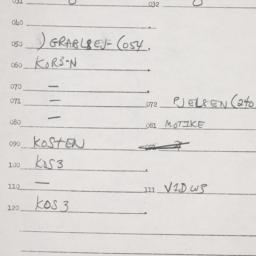 040
050 ) GRABLREJ- (054.
060 KORS-N
070 —
071 — 072 PJELSEN (240
080 — 081 MOTIKE
090 KOSTEN
100 KOS 3
110 — 111 VIDWS
120 KOS 3